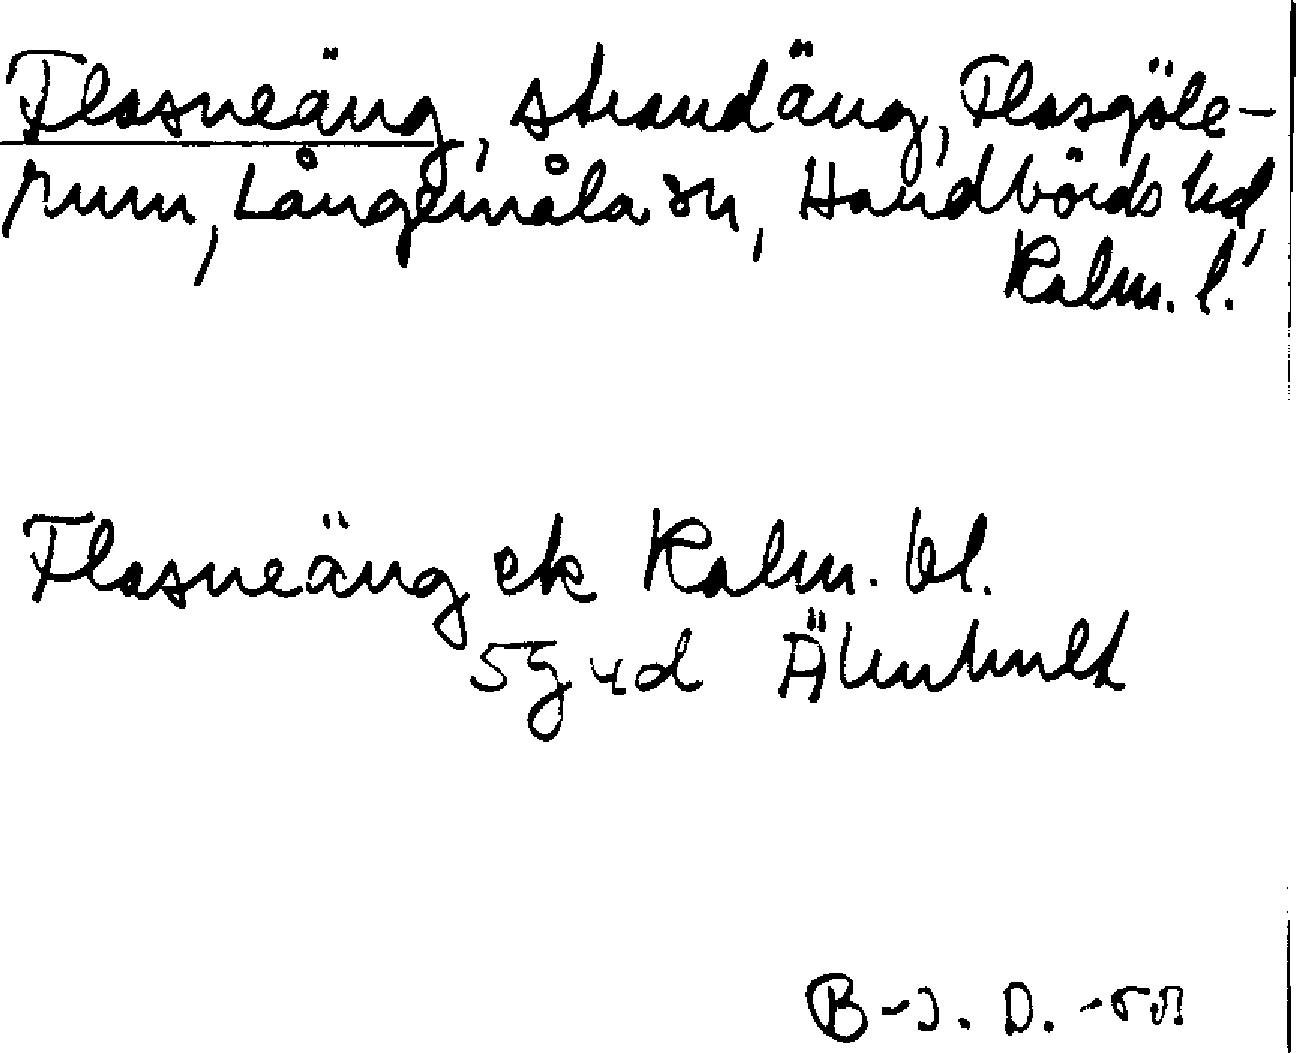 Flasneäng, strandäng, Flasgöle-
rum, Långemåla sn, Handbörds hd,
Kalm. l.
Flasneäng ek Kalm. bl.
5g 4d Älmhult
B-J. D. -55